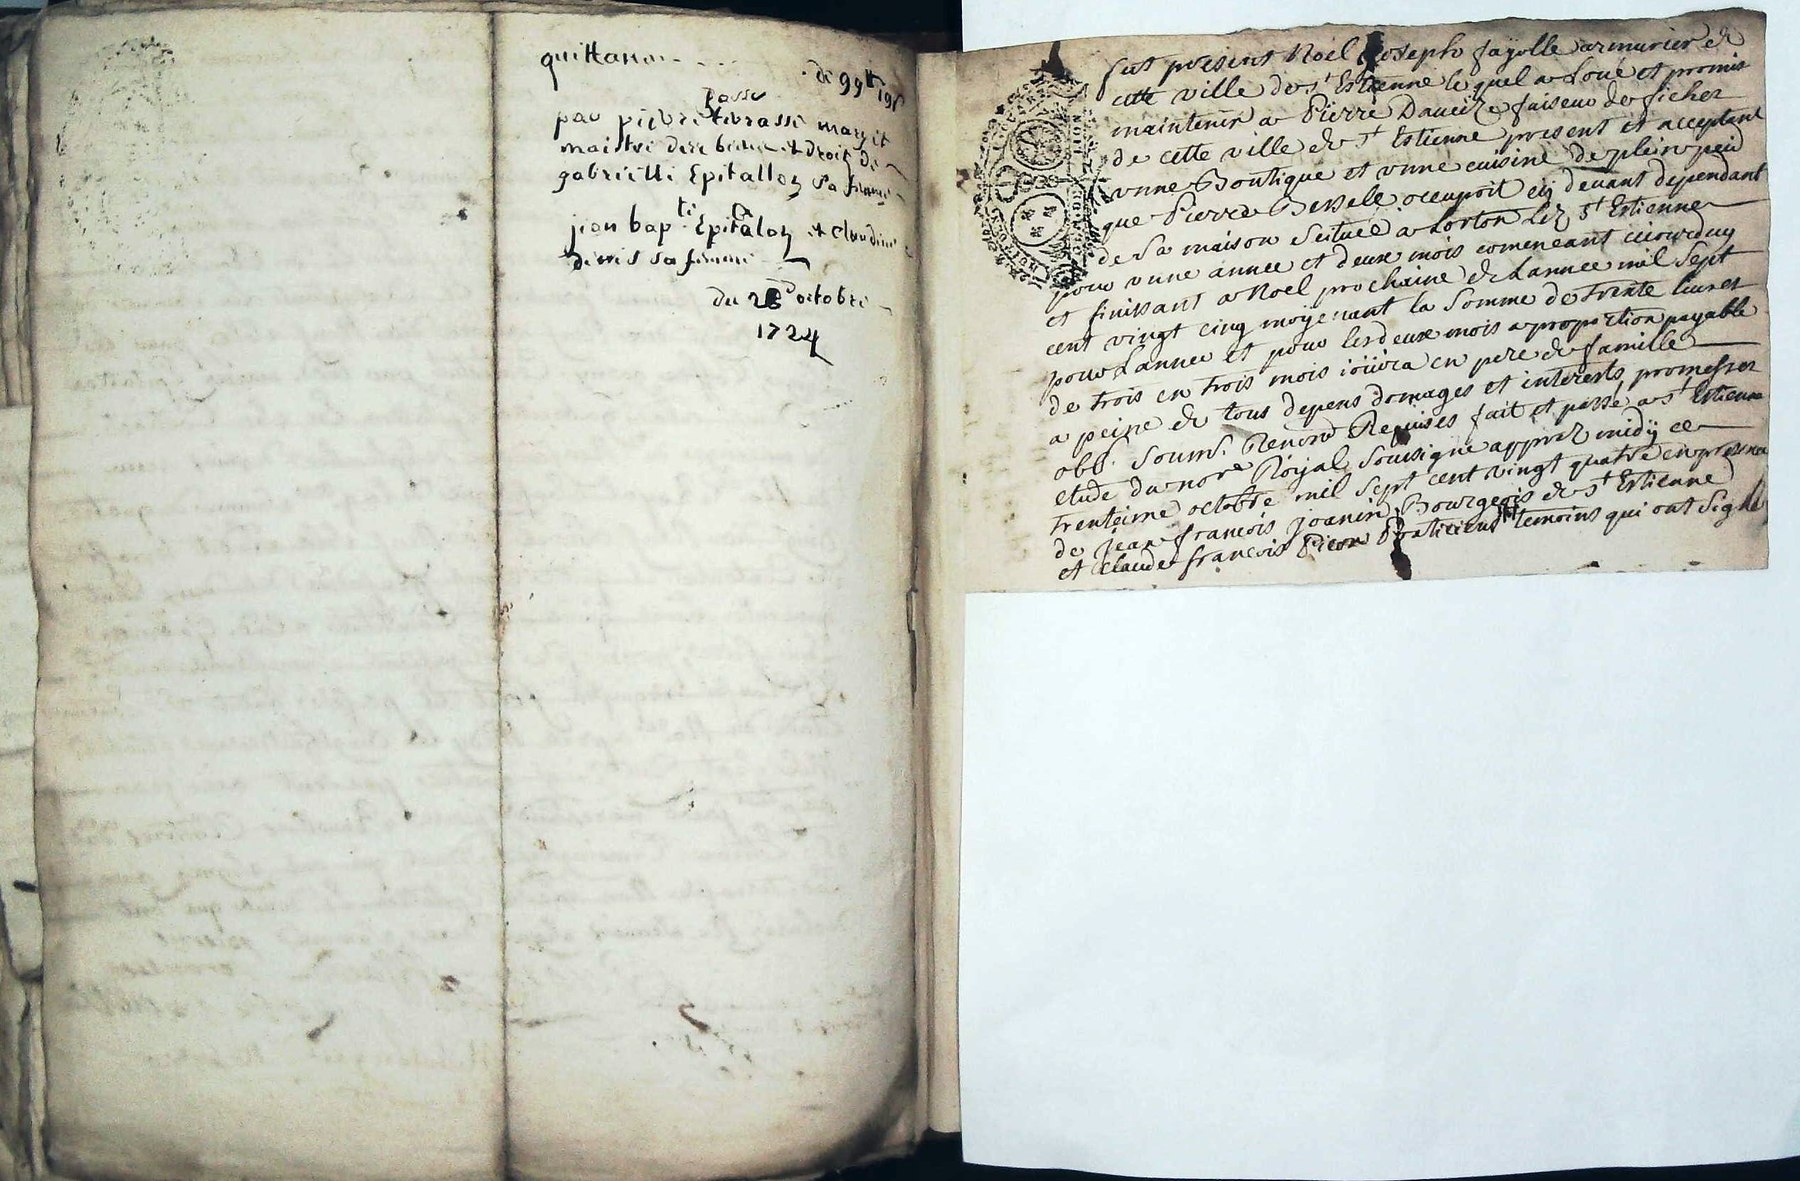 quittance
de 99ᵗᵗ 19ˢ
passe
par pierre terrasse mary et
maistre des biens et droit de
gabrielle Epitallon sa femme
jean bapᵗⁱ Epitalon et claudine
denis sa femme
du 28 octobre
1724
fut présent Noël Joseph fayolle armurier de
cette ville de sᵗ Estienne le quel a Loué et promis
maintenir a Pierre faiseur de fiches
de cette ville de sᵗ Estienne present et acceptant
vnne Boutique et vnne cuisine de plein pied
que Pierre Bessele occupoit cy devant dependant
de Sa maison Scituée a Lorton Lez sᵗ Estienne
pour vnne année et deux mois comencant cejourduy
et finissant a Noel prochaine de Lannee mil Sept
cent vingt cinq moyenant la Somme de trente liures
pour Lannee et pour les deux mois a proportion payable
de trois en trois mois joüira en pere de famille
a peine de tous depens domages et interests promesses
obl. Soums. Renonᵒⁿ Requises fait et passé a sᵗ Estienne
etude du noʳᵉ Roijal Sousigné apprez midÿ ce
trentieme octobre mil Sept cent vingt quatre en presence
de jean francois joanin Bourgeois de sᵗ Estienne
et claude francois Picon Praticiens temoins qui ont Signé